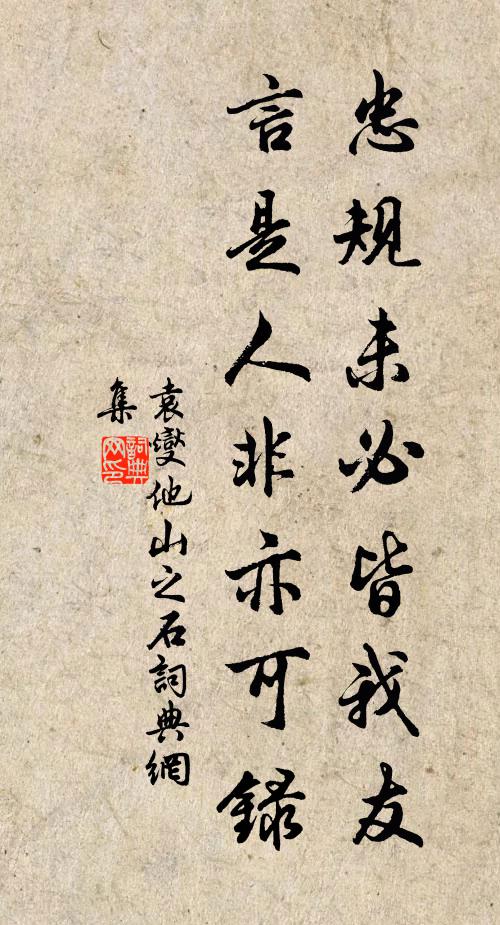 忠規未必皆我友
言是人非亦可錄
袁燮他山之石詞典網
集
詞典網印